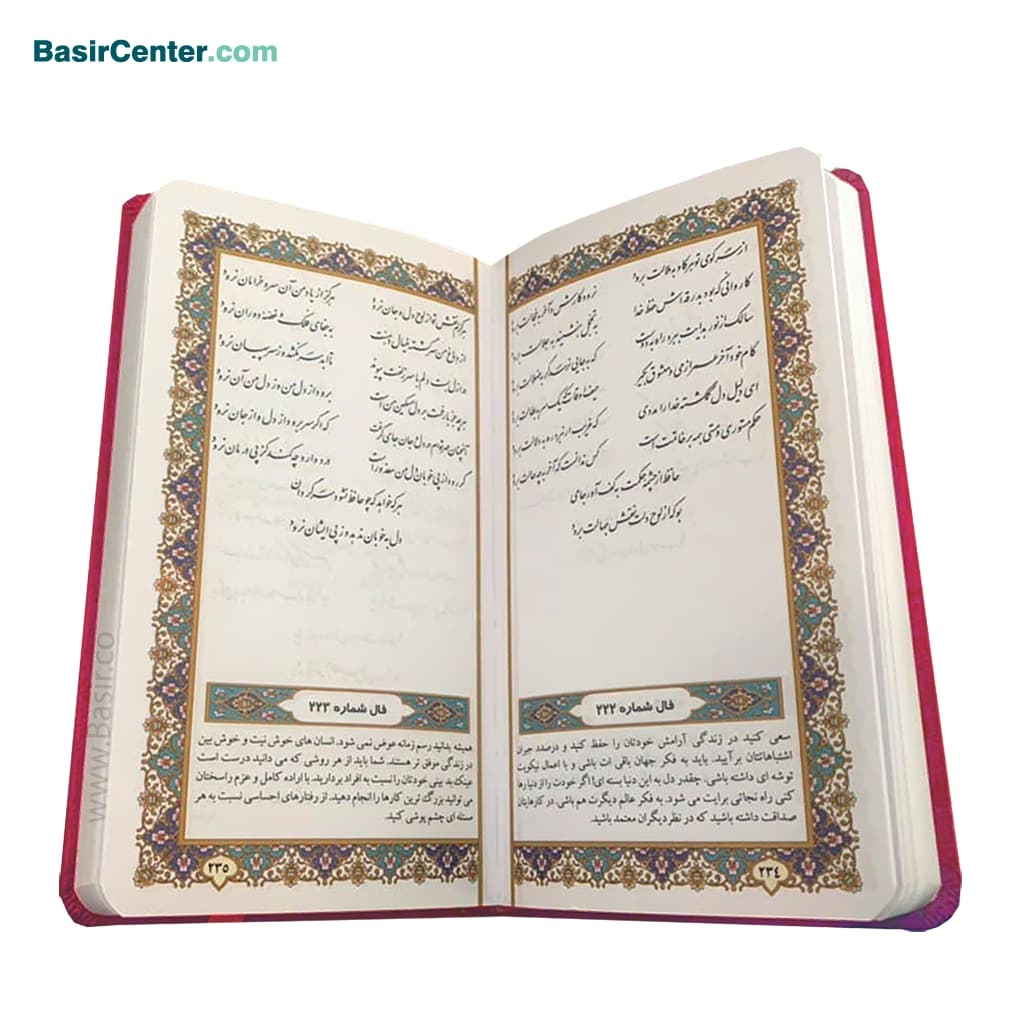 BasirCenter.com
از سر کوی تو هر کاو به ملالت برود
نرود کارش و آخر به خجالت برود
کاروانی که بود بدرقه اش حفظ خدا
به تجمل بنشیند به جلالت برود
سالک از نور هدایت ببرد راه به دوست
که به جایی نرسد گر به ضلالت برود
کام خود آخر عمر از می و معشوق بگیر
حیف اوقات که یک سر به بطالت برود
ای دلیل دل گمگشته خدا را مددی
که غریب ار نبرد ره به دلالت برود
حکم مستوری و مستی همه بر خاتمت است
کس ندانست که آخر به چه حالت برود
حافظ از چشمه حکمت به کف آور جامی
بو که از لوح دلت نقش جهالت برود
فال شماره ۲۲۲
سعی کنید در زندگی آرامش خودتان را حفظ کنید و درصدد جبران
اشتباهاتتان برآیید. باید به فکر جهان باقی ات باشی و با اعمال نیکویت
توشه ای داشته باشی. چقدر دل به این دنیا بسته ای! اگر خودت را از دنیا رها
کنی راه نجاتی برایت می شود. به فکر عالم دیگرت هم باشی. در کارهایتان
صداقت داشته باشید که در نظر دیگران معتمد باشید.
۲۳٤
هرگزم نقش تو از لوح دل و جان نرود
هرگز از یاد من آن سرو خرامان نرود
از دماغ من سرگشته خیال دهنت
به جفای فلک و غصه دوران نرود
در ازل بست دلم با سر زلفت پیوند
تا ابد سر نکشد و ز سر پیمان نرود
هر چه جز بار غمت بر دل مسکین من است
برود از دل من وز دل من آن نرود
آنچنان مهر توام در دل و جان جای گرفت
که اگر سر برود از دل و از جان نرود
گر رود از پی خوبان دل من معذور است
درد دارد چه کند کز پی درمان نرود
هر که خواهد که چو حافظ نشود سرگردان
دل به خوبان ندهد و ز پی ایشان نرود
فال شماره ۲۲۳
همیشه بدانید رسم زمانه عوض نمی شود. انسان های خوش نیت و خوش بین
در زندگی موفق تر هستند. شما باید از هر روشی که می دانید درست است
عینک بد بینی خودتان را نسبت به افراد بردارید. با اراده کامل و عزم راسختان
می توانید بزرگ ترین کارها را انجام دهید. از رفتارهای احساسی نسبت به هر
مسئله ای چشم پوشی کنید.
۲۳٥
www.Basir.co